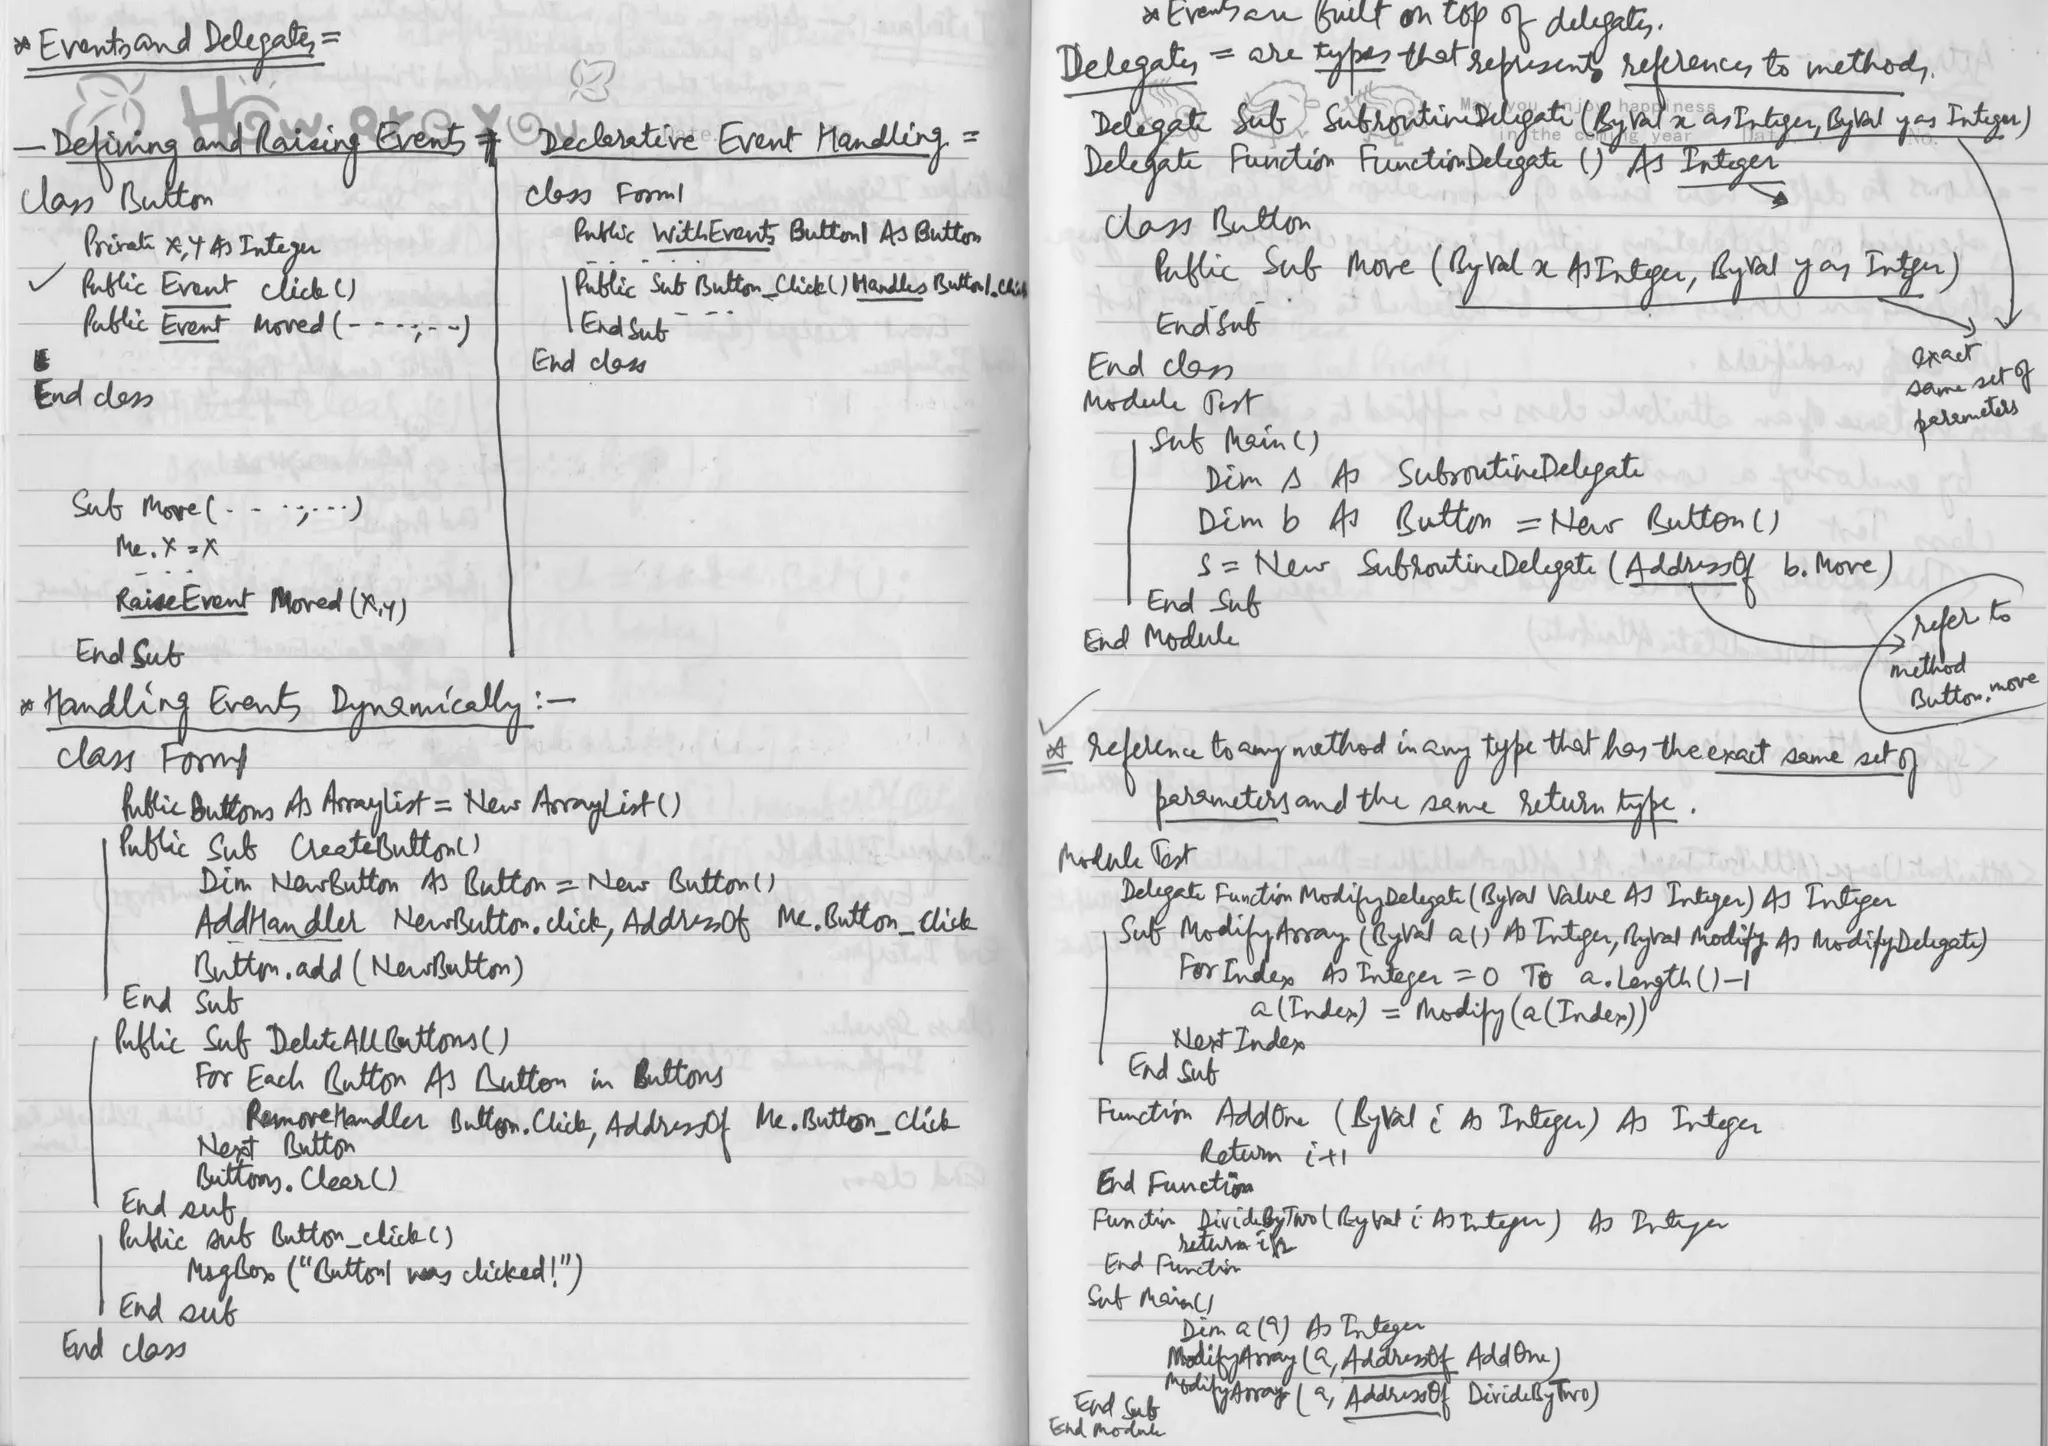 * Events and Delegates =
How are you
Date
— Defining and Raising Events =
Class Button
Private X, Y As Integer
✓ Public Event Click()
Public Event Moved (- - - -, - - -)
End class
Sub Move (- - - -, - - -)
Me.X = X
- - - -
RaiseEvent Moved (X, Y)
End Sub
Declarative Event Handling =
Class Form1
Public WithEvents Button1 As Button
- - - - - -
Public Sub Button_Click() Handles Button1.Click
- - -
End Sub
End class
* Handling Events Dynamically :—
Class Form1
Public Buttons As ArrayList = New ArrayList()
Public Sub CreateButton()
Dim NewButton As Button = New Button()
AddHandler NewButton.click, AddressOf Me.Button_Click
Button.add (NewButton)
End Sub
Public Sub DeleteAllButtons()
For Each Button As Button in Buttons
RemoveHandler Button.Click, AddressOf Me.Button_Click
Next Button
Buttons.Clear()
End sub
Public sub Button_click()
MsgBox ("Button1 was clicked!")
End sub
End class
* Events are built on top of delegates.
Delegates = are types that represents references to methods.
May you enjoy happiness
in the coming year Date No.
Delegate Sub SubroutineDelegate (ByVal x as Integer, ByVal y as Integer)
Delegate Function FunctionDelegate () As Integer
Class Button
Public Sub Move (ByVal x As Integer, ByVal y as Intger)
- - -
End Sub
exact
same set of
parameters
End class
Module Test
Sub Main()
Dim s As SubroutineDelegate
Dim b As Button = New Button()
s = New SubroutineDelegate (AddressOf b.Move)
End Sub
End Module
refer to
method
Button.move
✓
* reference to any method in any type that has the exact same set of
parameters and the same return type.
Module Test
Delegate Function ModifyDelegate (ByVal Value As Integer) As Integer
Sub ModifyArray (ByVal a() As Integer, ByVal Modify As ModifyDelegate)
For Index As Integer = 0 To a.Length()-1
a(Index) = Modify(a(Index))
Next Index
End Sub
Function AddOne (ByVal i As Integer) As Integer
Return i+1
End Function
Functin DivideByTwo (ByVal i As Integer) As Integer
return i/2
End Function
Sub Main()
Dim a(9) As Integer
ModifyArray (a, AddressOf AddOne)
ModifyArray (a, AddressOf DivideByTwo)
End Sub
End Module